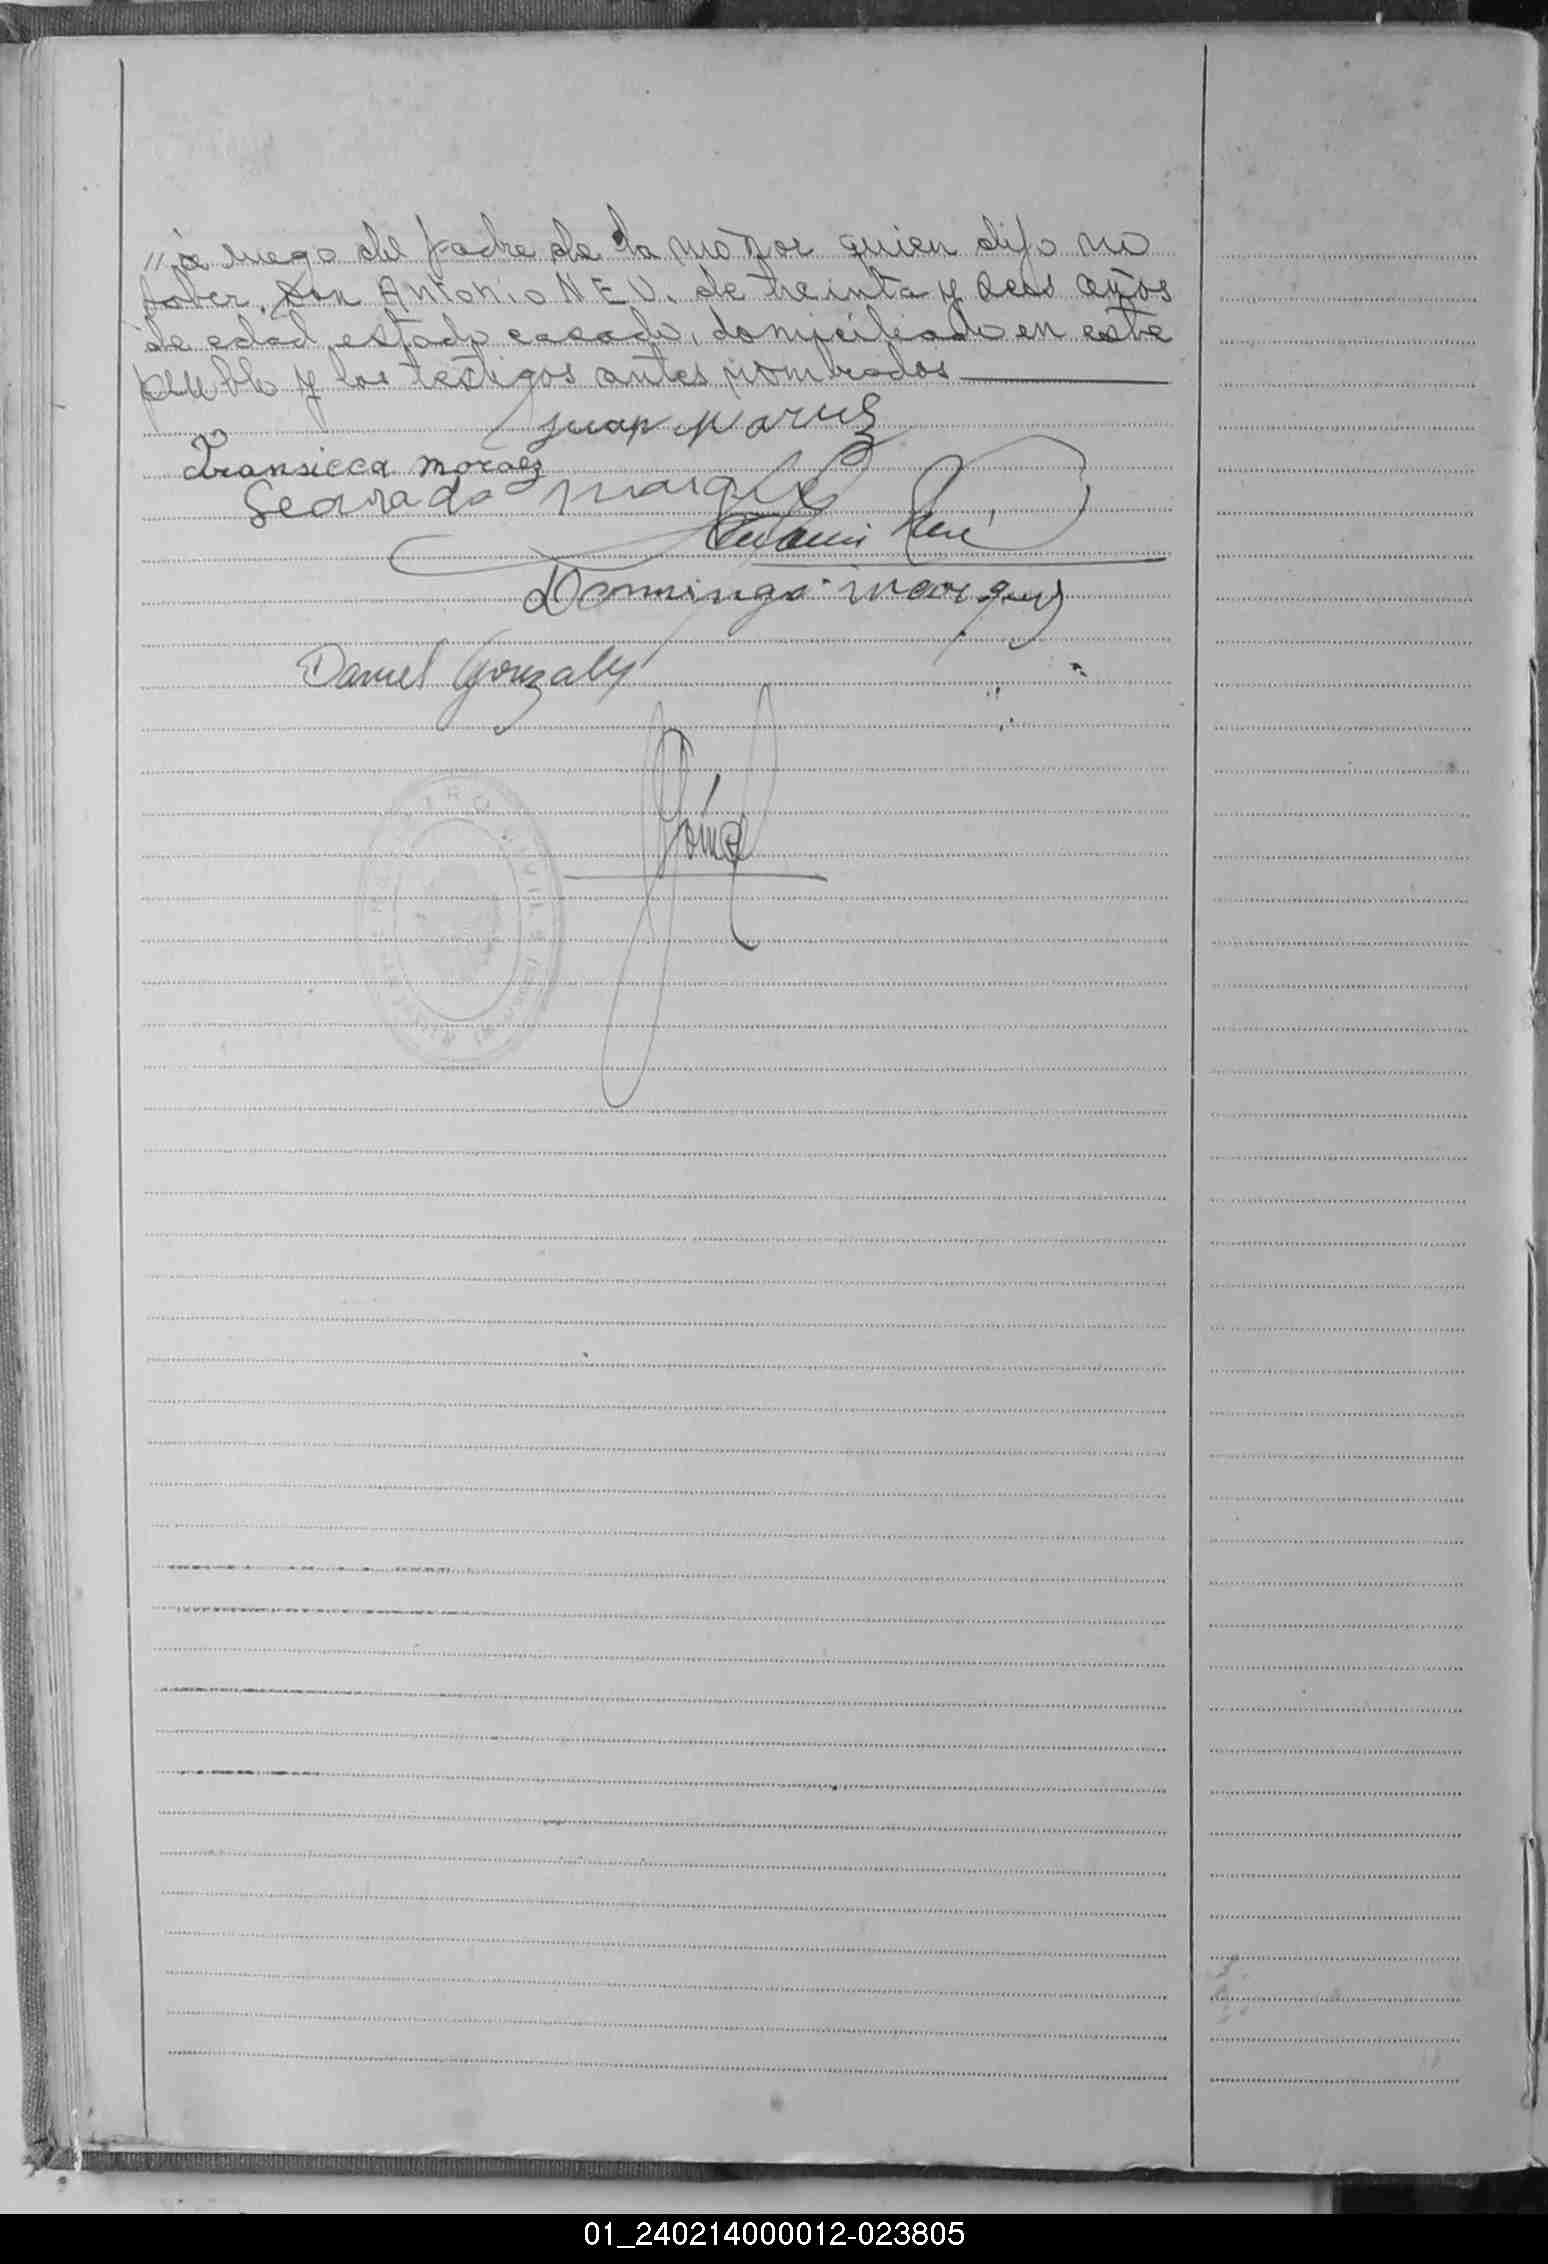 "à ruego del padre de la mayor quien dijo no
saber, Don Antonio NEU. de treinta y seis años
de edad, estado casado, domiciliado en este
pueblo y los testigos antes nombrados
Juan
Fransicca moraez
Gearrada marques
Domingo marques
Daniel Gonzalez
REGISTRO CIVIL
01_240214000012-023805